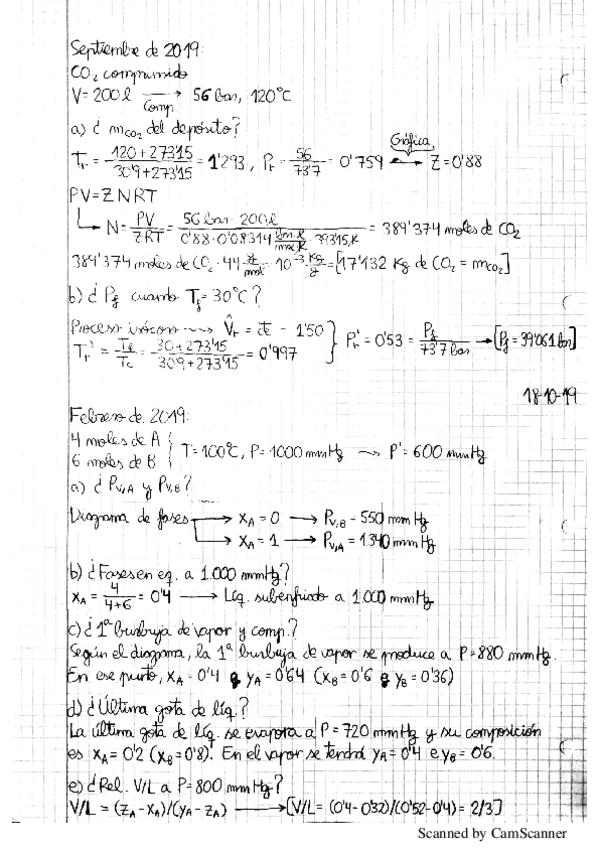 Septiembre de 2019:
CO₂ comprimido
V = 200 l ⟶ Comp. 56 bar, 120°C
a) ¿ mCO₂ del depósito?
Tr = (120 + 273'15)/(30'9 + 273'15) = 1'293, Pr = 56/73'7 = 0'759 ⟷ Gráfica Z = 0'88
PV = ZNRT
N = PV/ZRT = (56 bar · 200 l)/(0'88 · 0'08314 bar·l/mol·K · 393'15 K) = 389'374 moles de CO₂
389'374 moles de CO₂ · 44 g/mol · 10⁻³ Kg/g = [17'132 Kg de CO₂ = mCO₂]
b) ¿ Pf cuando Tf = 30°C?
Proceso isócoro ⟿ V̂r = cte = 1'50
Tr' = Tf/Tc = (30 + 273'15)/(30'9 + 273'15) = 0'997 } Pr' = 0'53 = Pf/73'7 bar → [Pf = 39'061 bar]
18-10-19
Febrero de 2019:
4 moles de A
6 moles de B } T = 100°C, P = 1000 mmHg ⟿ P' = 600 mmHg
a) ¿ Pv,A y Pv,B?
Diagrama de fases → xA = 0 → Pv,B = 550 mmHg
→ xA = 1 → Pv,A = 1.340 mmHg
b) ¿Fases en eq. a 1.000 mmHg?
xA = 4/(4+6) = 0'4 → Líq. subenfriado a 1.000 mmHg
c) ¿1ª burbuja de vapor y comp.?
Según el diagrama, la 1ª burbuja de vapor se produce a P = 880 mmHg.
En ese punto, xA = 0'4 e yA = 0'64 (xB = 0'6 e yB = 0'36)
d) ¿Última gota de líq.?
La última gota de líq. se evapora a P = 720 mmHg y su composición
es xA = 0'2 (xB = 0'8). En el vapor se tendrá yA = 0'4 e yB = 0'6.
e) ¿Rel. V/L a P = 800 mmHg?
V/L = (zA - xA)/(yA - zA) → [V/L = (0'4 - 0'32)/(0'52 - 0'4) = 2/3]
Scanned by CamScanner